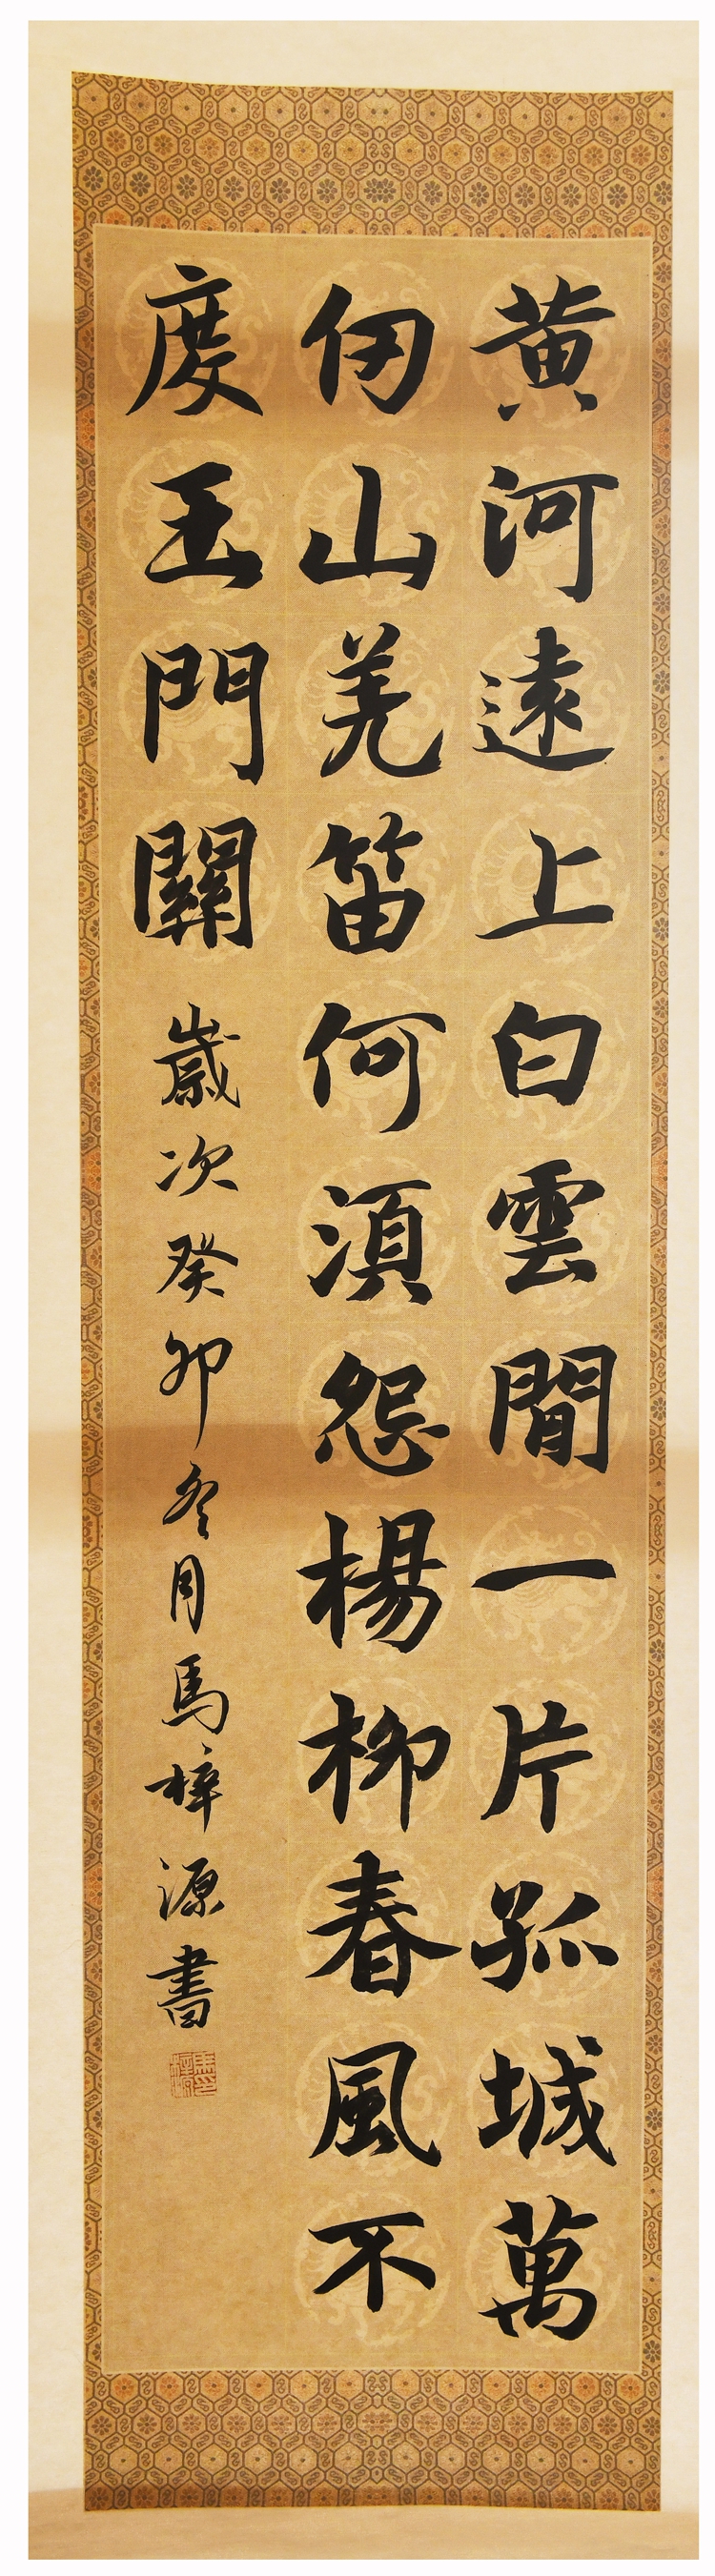 黃河遠上白雲間一片孤城萬
仞山羌笛何須怨楊柳春風不
度玉門關
歲次癸卯冬月馬梓源書